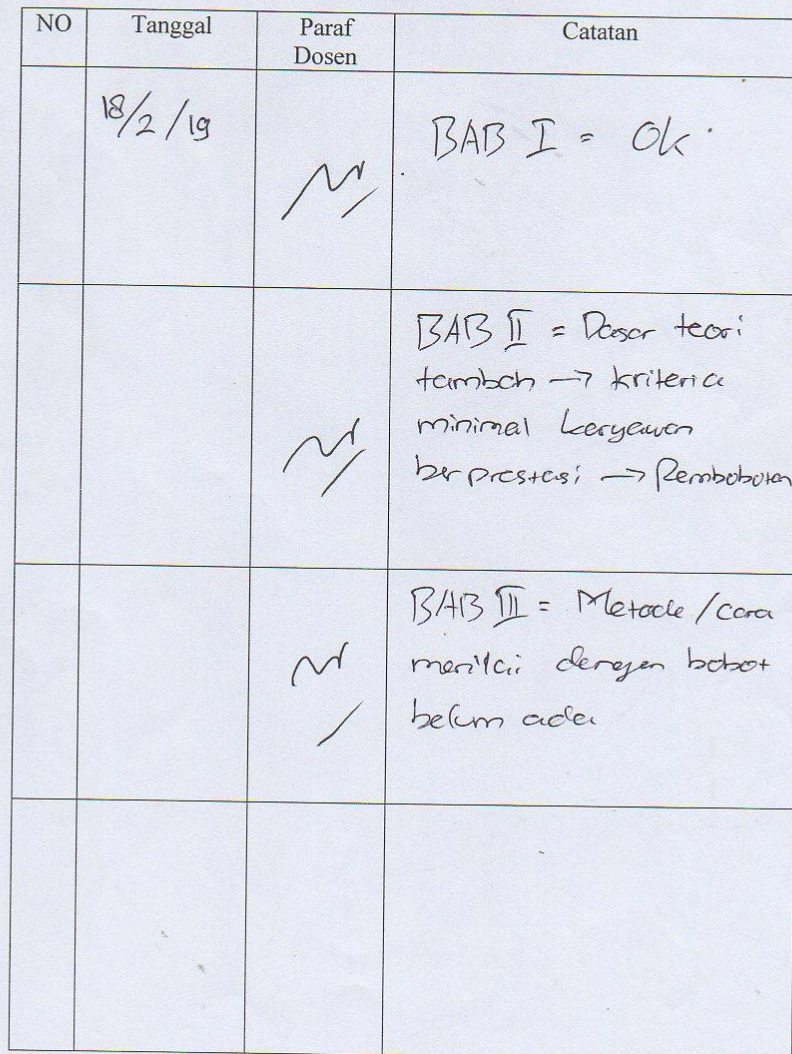 NO Tanggal Paraf Catatan
Dosen
18/2/19 BAB I = Ok.
BAB II = Dasar teori
tambah → kriteria
minimal karyawan
berprestasi → Pembobotan
BAB III = Metode/cara
menilai dengan bobot
belum ada